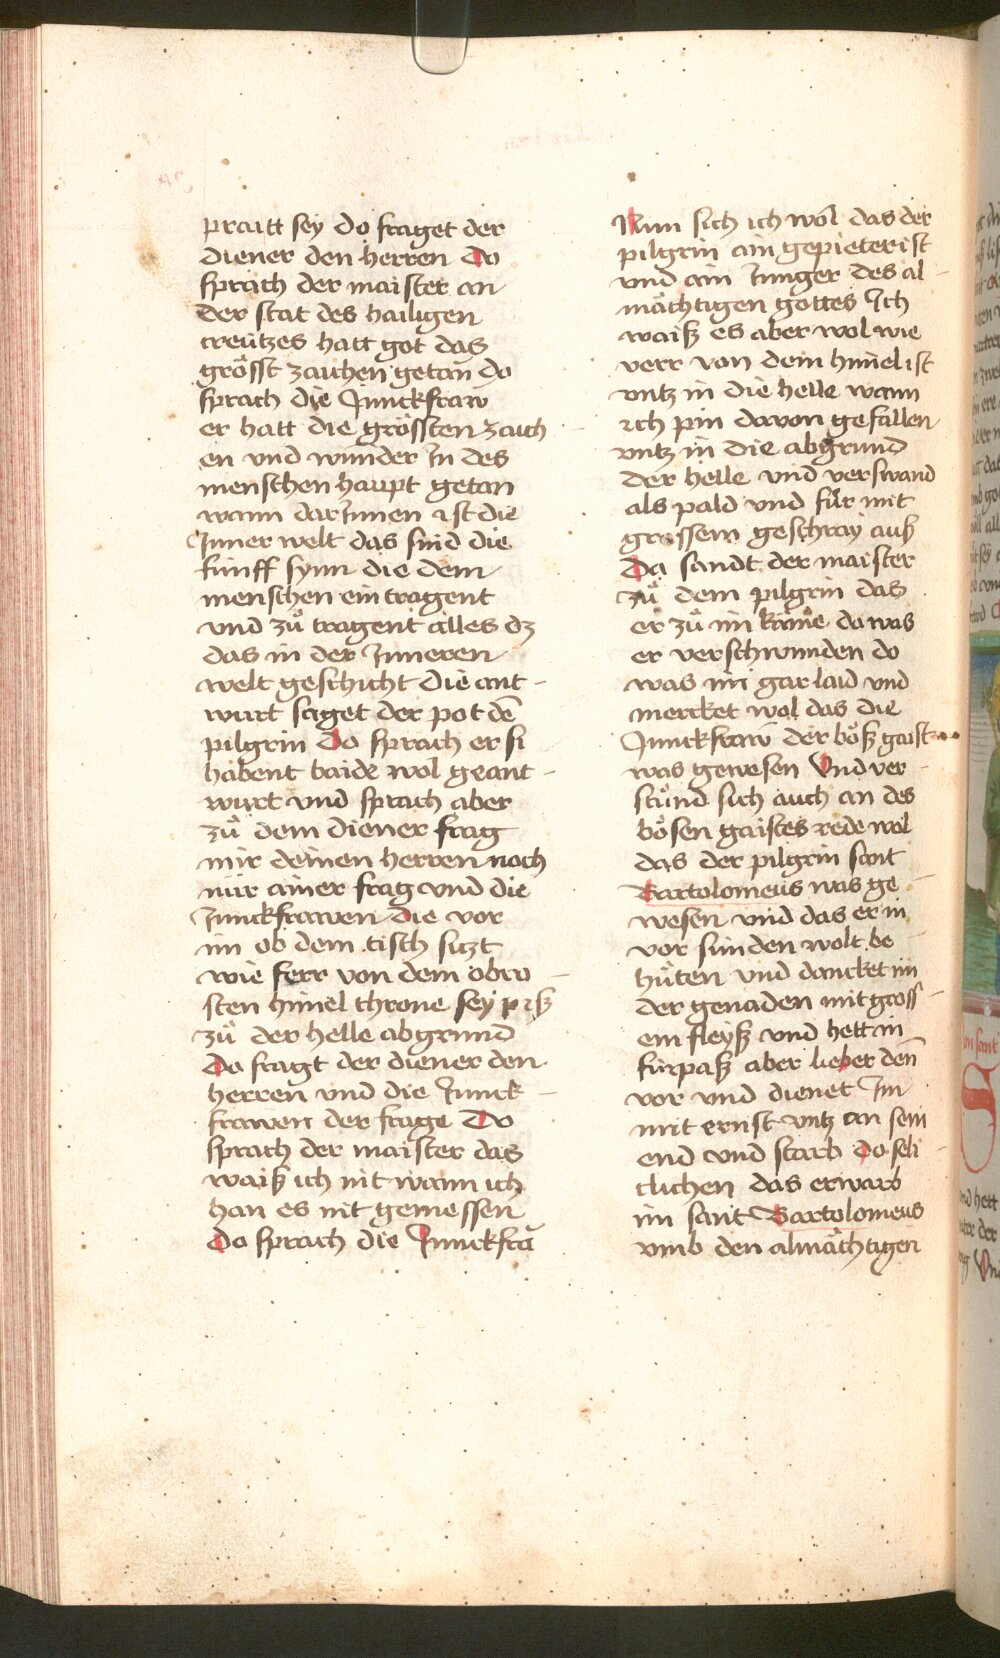 praitt sey do fraget der
diener den herren Do
sprach der maister an
der stat des hailigen
creützes hatt got das
grösst zaichen getan do
sprach die Junckfraw
er hatt die grössten zaich
en vnd wunder In des
menschen haupt getan
wann darInnen ist die
Inner welt das sind die
fünff synn die dem
menschen ein tragent
vnd zů tragent alles dz
das in der Inneren
welt geschicht die ant-
wurt saget der pot dē
pilgrin Do sprach er si
habent baide wol geant-
wurt vnd sprach aber
zů dem diener frag
mir deinen herren noch
nür ainer frag vnd die
Junckfrawen die vor
im ob dem tisch sitzt
wie ferr von dem obro-
sten himel throne sey piß
zů der helle abgrund
Do fragt der diener den
herren vnd die Junck-
frawen der frage Do
sprach der maister das
waiß ich nit wann ich
han es nit gemessen
Do sprach die Junckfrā
Nun sich ich wol das der
pilgrin ain gepieter ist
vnd ain Junger des al-
mächtigen gottes Ich
waiß es aber wol wie
verr von dem himel ist
vntz in die helle wann
ich pin davon gefallen
vntz in die abgrund
der helle vnd verswand
als pald vnd für mit
grossem geschray auß
Da sandt der maister
zů dem pilgrin das
er zů im käme do was
er verschwunden do
was im gar laid vnd
mercket wol das die
Junckfraw der böß gaist
was gewesen Vnd ver-
stůnd sich auch an des
bösen gaistes rede wol
das der pilgrin sant
Bartolomeus was ge-
wesen vnd das er in
vor sünden wolt be-
hüten vnd dancket im
der genaden mit gross-
em fleyß vnd hett in
fürpaß aber lieber deñ
vor vnd dienet Im
mit ernst vntz an sein
end vnd starb do seli-
clichen das erwarb
im sant Bartolomeus
vmb den almächtigen